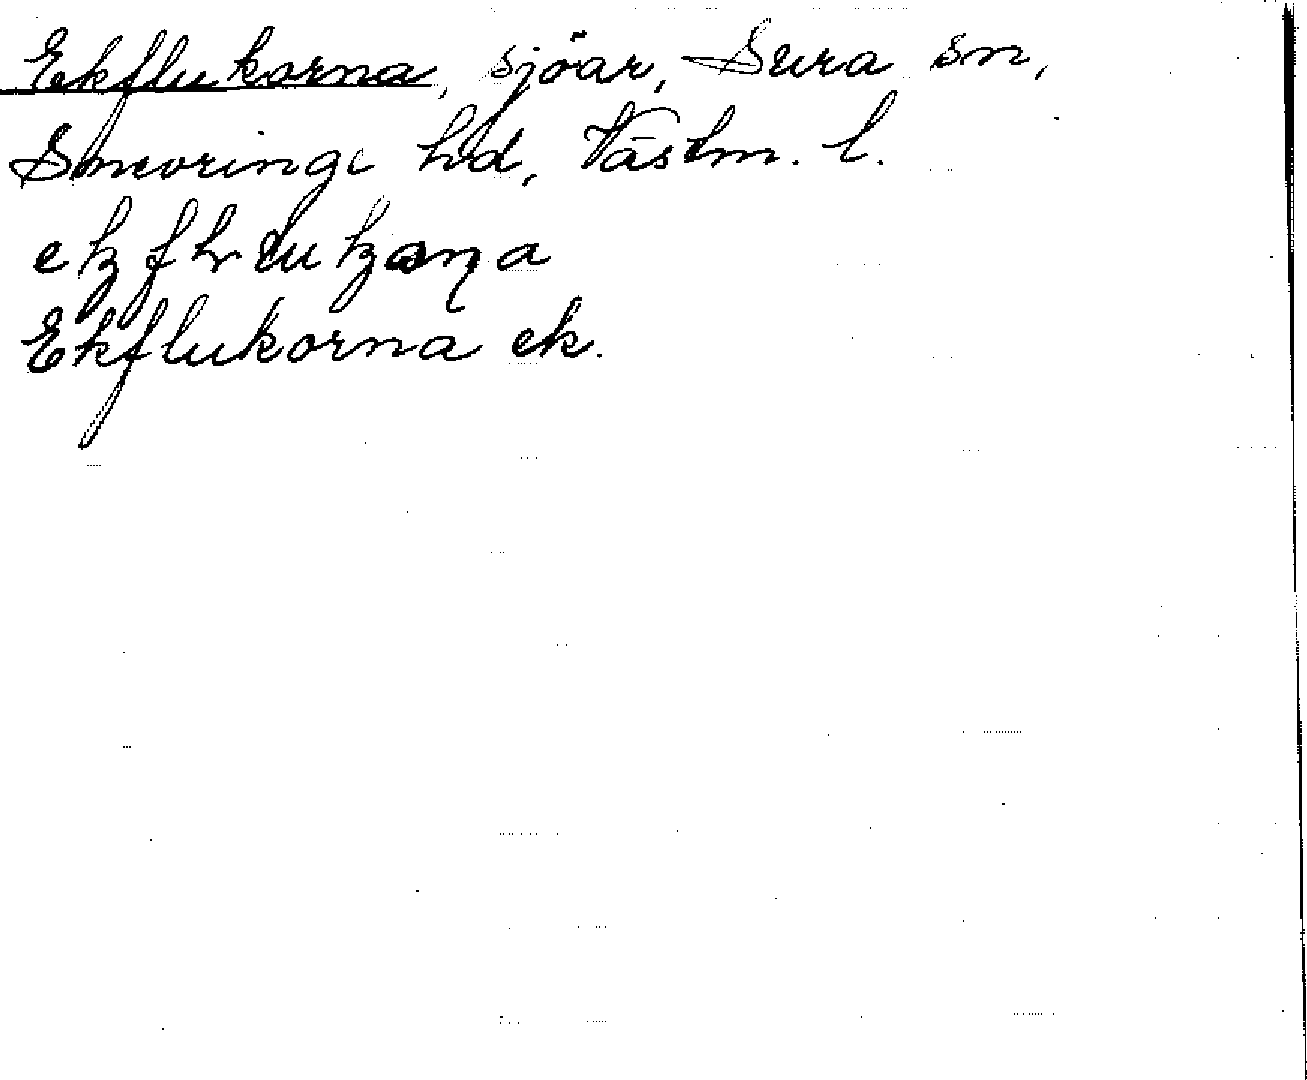 Ekflukorna, sjöar, Sura sn,
Snevringe hd, Västm. l.
Ekflukorna ek.